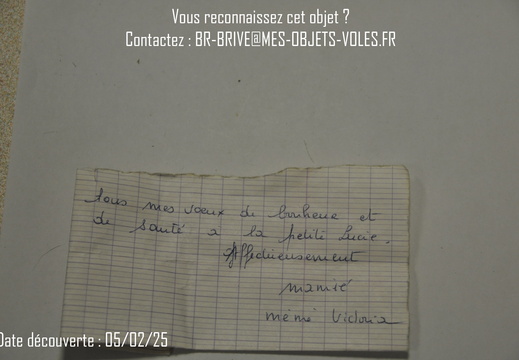 Vous reconnaissez cet objet ?
Contactez : BR-BRIVE@MES-OBJETS-VOLES.FR
tous mes voeux de bonheur et
de santé a la petite Lucie.
Affectueusement
mamie
mémé Victoria
Date découverte : 05/02/25